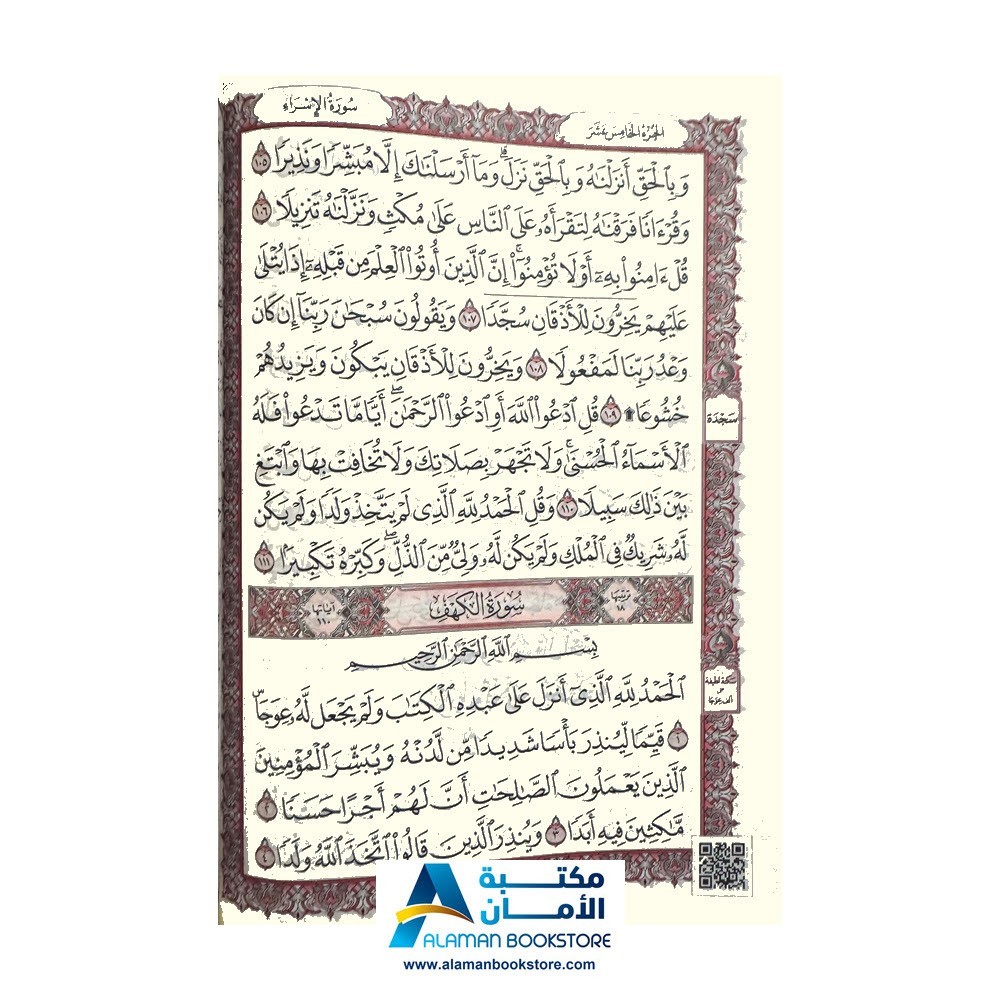 سُورَةُ الإِسْرَاءِ
الجُزْءُ الخَامِسَ عَشَرَ
وَبِٱلْحَقِّ أَنزَلْنَٰهُ وَبِٱلْحَقِّ نَزَلَ ۗ وَمَآ أَرْسَلْنَٰكَ إِلَّا مُبَشِّرًا وَنَذِيرًا ١٠٥
وَقُرْءَانًا فَرَقْنَٰهُ لِتَقْرَأَهُۥ عَلَى ٱلنَّاسِ عَلَىٰ مُكْثٍ وَنَزَّلْنَٰهُ تَنزِيلًا ١٠٦
قُلْ ءَامِنُوا۟ بِهِۦٓ أَوْ لَا تُؤْمِنُوٓا۟ ۚ إِنَّ ٱلَّذِينَ أُوتُوا۟ ٱلْعِلْمَ مِن قَبْلِهِۦٓ إِذَا يُتْلَىٰ
عَلَيْهِمْ يَخِرُّونَ لِلْأَذْقَانِ سُجَّدًا ١٠٧ وَيَقُولُونَ سُبْحَٰنَ رَبِّنَآ إِن كَانَ
وَعْدُ رَبِّنَا لَمَفْعُولًا ١٠٨ وَيَخِرُّونَ لِلْأَذْقَانِ يَبْكُونَ وَيَزِيدُهُمْ
خُشُوعًا ۩ ١٠٩ قُلِ ٱدْعُوا۟ ٱللَّهَ أَوِ ٱدْعُوا۟ ٱلرَّحْمَٰنَ ۖ أَيًّا مَّا تَدْعُوا۟ فَلَهُ
سَجْدَة
ٱلْأَسْمَآءُ ٱلْحُسْنَىٰ ۚ وَلَا تَجْهَرْ بِصَلَاتِكَ وَلَا تُخَافِتْ بِهَا وَٱبْتَغِ
بَيْنَ ذَٰلِكَ سَبِيلًا ١١٠ وَقُلِ ٱلْحَمْدُ لِلَّهِ ٱلَّذِى لَمْ يَتَّخِذْ وَلَدًا وَلَمْ يَكُن
لَّهُۥ شَرِيكٌ فِى ٱلْمُلْكِ وَلَمْ يَكُن لَّهُۥ وَلِىٌّ مِّنَ ٱلذُّلِّ ۖ وَكَبِّرْهُ تَكْبِيرًۢا ١١١
ترتيبها ١٨
سُورَةُ الكَهْفِ
آياتها ١١٠
بِسْمِ ٱللَّهِ ٱلرَّحْمَٰنِ ٱلرَّحِيمِ
ٱلْحَمْدُ لِلَّهِ ٱلَّذِىٓ أَنزَلَ عَلَىٰ عَبْدِهِ ٱلْكِتَٰبَ وَلَمْ يَجْعَل لَّهُۥ عِوَجَا ۜ
سكتة لطيفة
على
ألف عوجا
١ قَيِّمًا لِّيُنذِرَ بَأْسًا شَدِيدًا مِّن لَّدُنْهُ وَيُبَشِّرَ ٱلْمُؤْمِنِينَ
ٱلَّذِينَ يَعْمَلُونَ ٱلصَّٰلِحَٰتِ أَنَّ لَهُمْ أَجْرًا حَسَنًا ٢
مَّٰكِثِينَ فِيهِ أَبَدًا ٣ وَيُنذِرَ ٱلَّذِينَ قَالُوا۟ ٱتَّخَذَ ٱللَّهُ وَلَدًا ٤
مكتبة
الأمان
ALAMAN BOOKSTORE
www.alamanbookstore.com